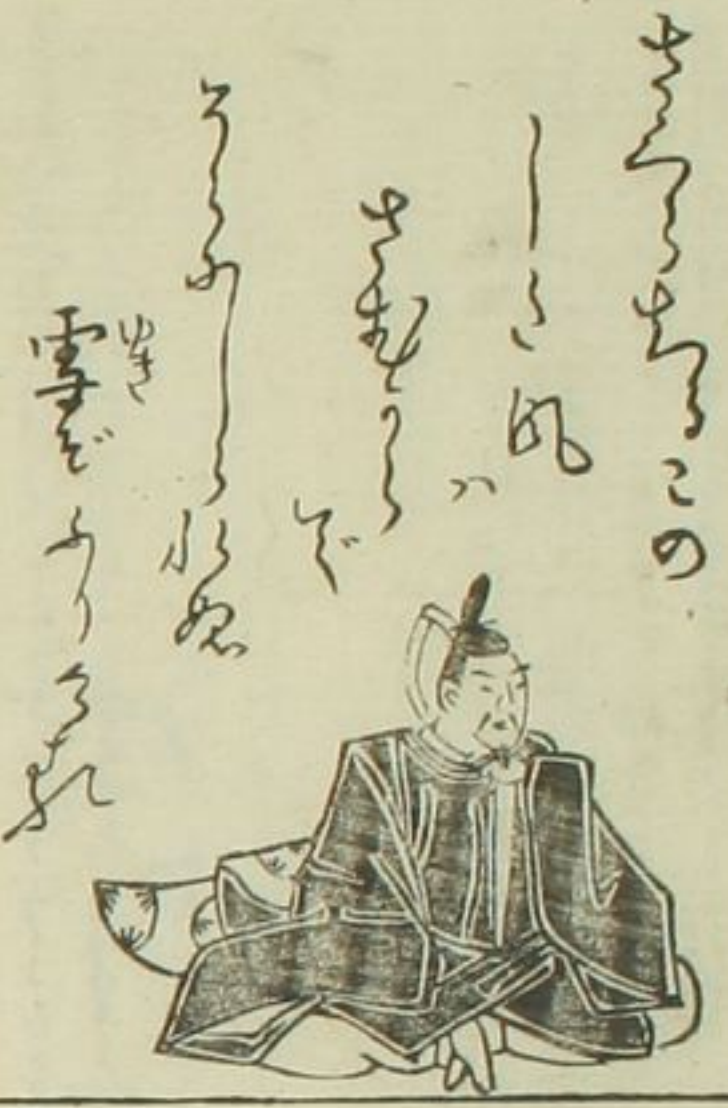 さくらちるこの
した風
ハ
さむから
で
そらにしられぬ
ゆき
雪ぞふりける